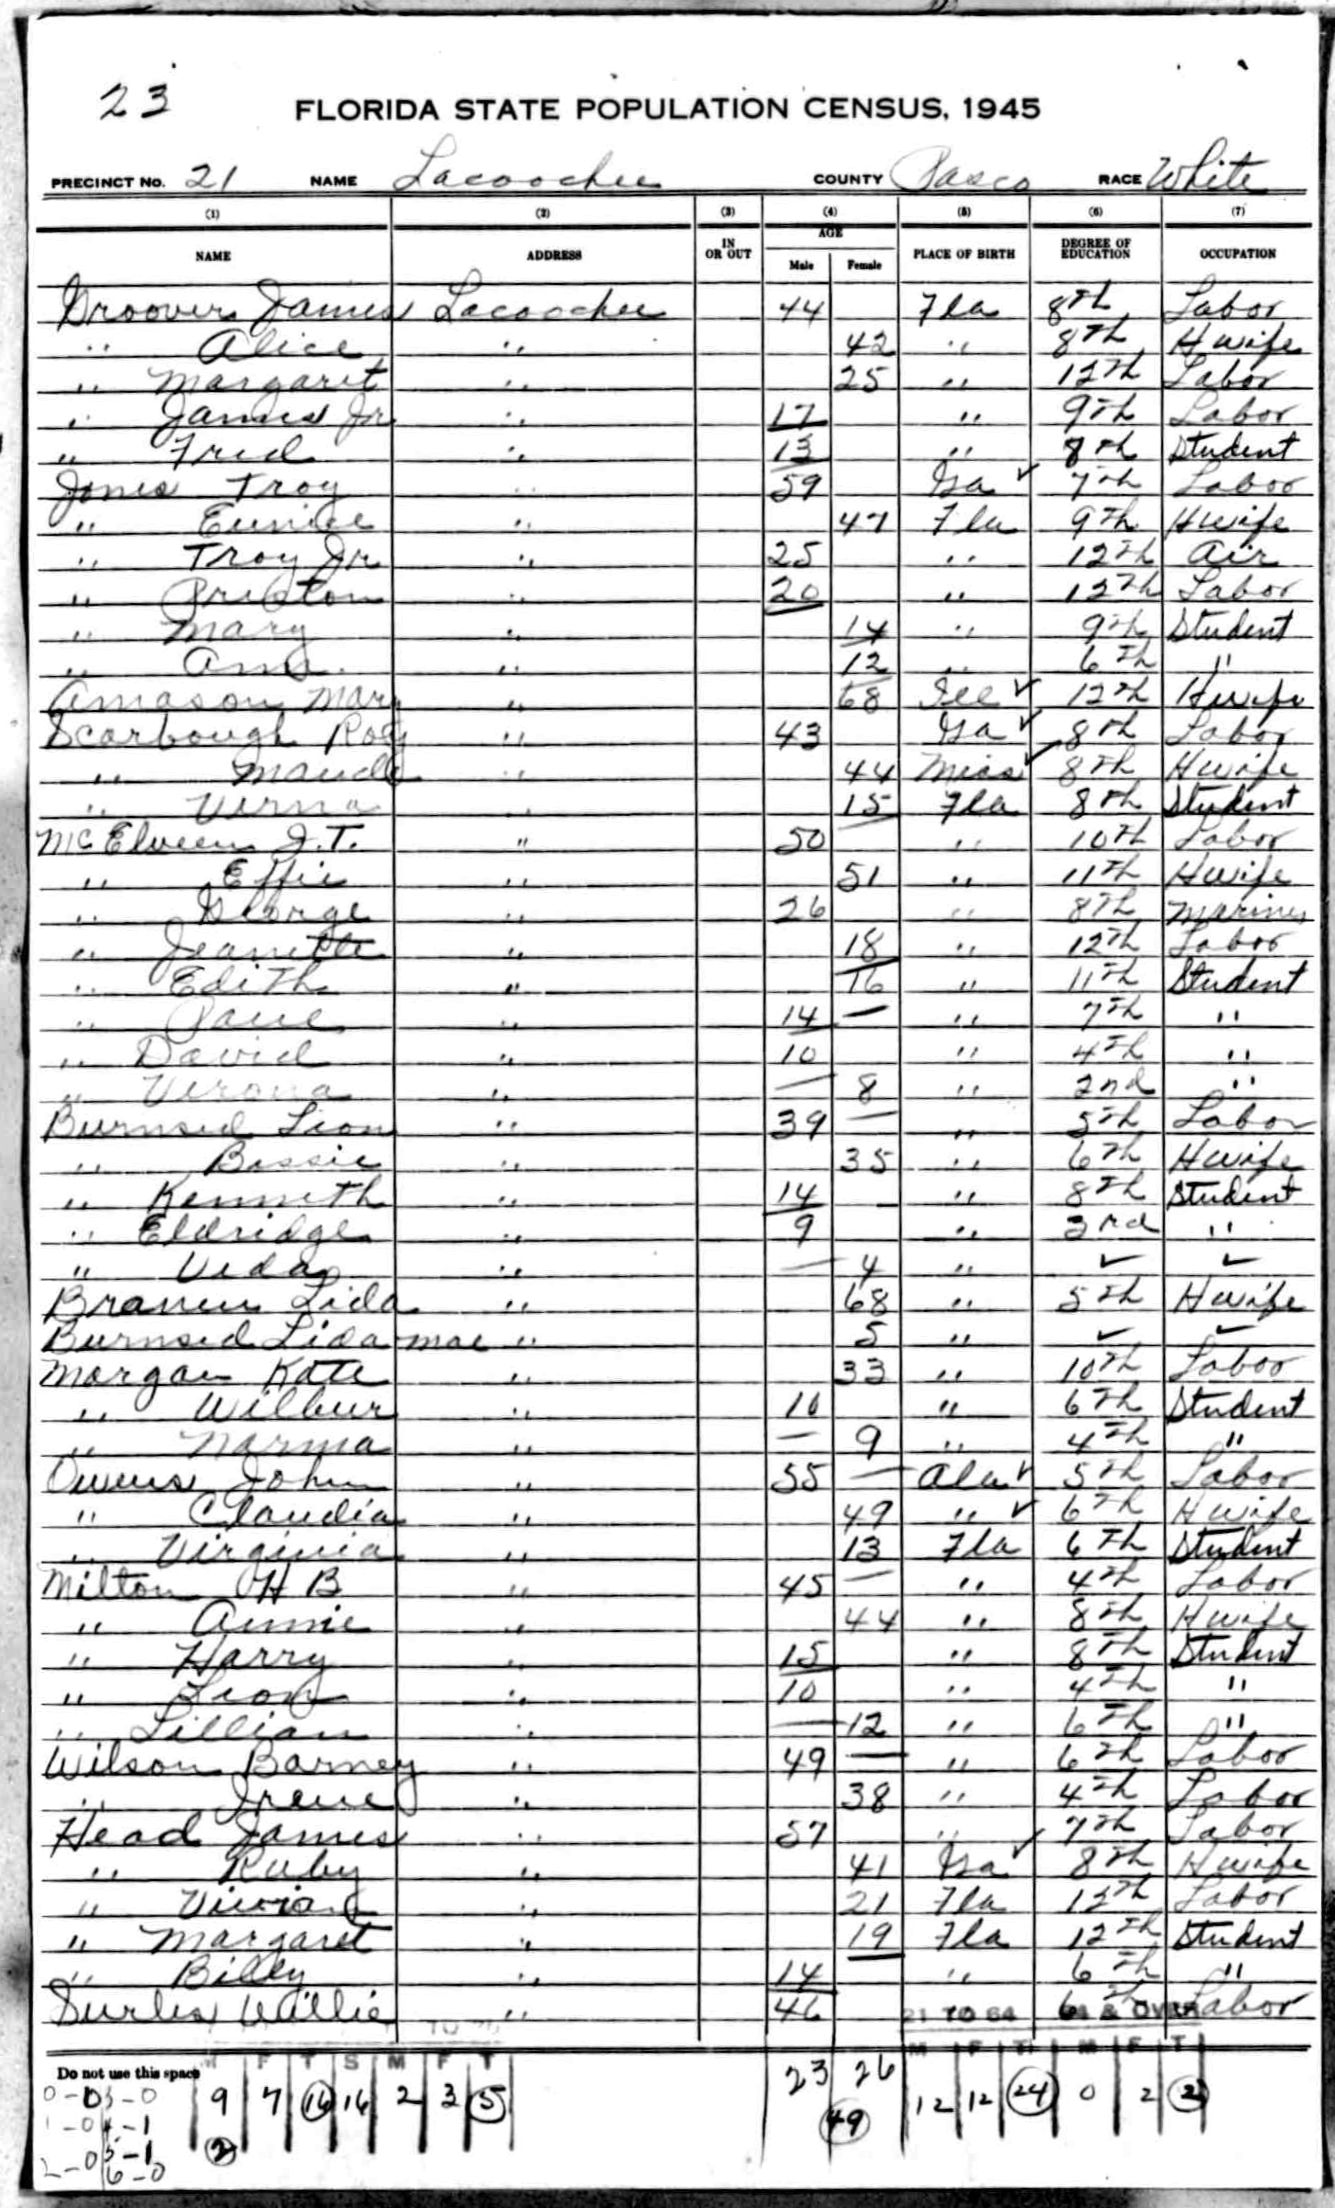 23
FLORIDA STATE POPULATION CENSUS, 1945
PRECINCT No. 21 NAME Lacoochee COUNTY Pasco RACE White
(1) (2) (3) (4) (5) (6) (7)
NAME ADDRESS IN OR OUT AGE Male Female PLACE OF BIRTH DEGREE OF EDUCATION OCCUPATION
Groover James Lacoochee 44 Fla 8th Labor
" Alice " 42 " 8th Hwife
" Margaret " 25 " 12th Labor
" James Jr " 17 " 9th Labor
" Fred " 13 " 8th Student
Jones Troy " 59 Ga ✓ 7th Labor
" Eunice " 47 Fla 9th Hwife
" Troy Jr " 25 " 12th Air
" Preston " 20 " 12th Labor
" Mary " 14 " 9th Student
" Ann " 12 " 6th "
Amason Mary " 68 ✓ 12th Hwife
Scarbough Roy " 43 Ga ✓ 8th Labor
" Maude " 44 Miss ✓ 8th Hwife
" Verna " 15 Fla 8th Student
McElveen J.T. " 50 " 10th Labor
" Effie " 51 " 11th Hwife
" George " 26 " 8th Marines
" Jeanette " 18 " 12th Labor
" Edith " 16 " 11th Student
" Paul " 14 — " 7th "
" David " 10 " 4th "
" Verona " — 8 " 2nd "
Burnsed Leon " 39 — " 5th Labor
" Bessie " 35 " 6th Hwife
" Kenneth " 14 " 8th Student
" Eldridge " 9 " 3rd "
" Veda " — 4 " ✓ ✓
Branen Lida " 68 " 5th Hwife
Burnsed Lida mae " 5 " ✓ ✓
Morgan Kate " 33 " 10th Labor
" Wilbur " 10 " 6th Student
" Norma " — 9 " 4th "
Owens John " 55 — Ala ✓ 5th Labor
" Claudia " 49 " ✓ 6th Hwife
" Virginia " 13 Fla 6th Student
Milton H B " 45 — " 4th Labor
" Annie " 44 " 8th Hwife
" Harry " 15 " 8th Student
" Leon " 10 " 4th "
" Lillian " — 12 " 6th "
Wilson Barney " 49 — " 6th Labor
" Irene " 38 " 4th Labor
Head James " 57 " 7th Labor
" Ruby " 41 Ga ✓ 8th Hwife
" Vivian " 21 Fla 12th Labor
" Margaret " 19 Fla 12th Student
" Billy " 14 " 6th "
Surles Willie " 46 6th Labor
21 TO 64 & OVER
Do not use this space M F T S M F T 23 26 M F T M F T
0-0 3-0 9 7 16 16 2 3 5 49 12 12 24 0 2 2
1-0 4-1 2
2-0 5-1
6-0